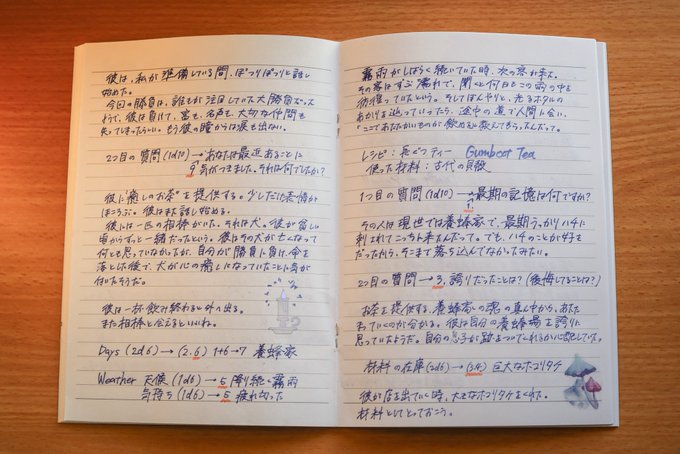 彼は、私が準備している間、ぽつりぽつりと話し
始めた。
今回の勝負は、誰もが注目していた大勝負だった
そうで、彼は負けて、富も、名声も、大切な仲間も
失ってしまったらしい。もう彼の瞳からは涙も出ない。
2つ目の質問(1d10)→あなたは最近あることに
9 気がつきました。それは何でしたか?
彼に"癒しのお茶"を提供する。少しだけ表情が
ほころぶ。彼はまた話し始める。
彼には一匹の相棒がいた。それは犬。彼が貧しい
頃からずっと一緒だったという。彼はその犬が亡くなって
何とも思っていなかったが、自分が勝負に負け、命を
落とした後で、犬が心の癒しになっていたことに気が
付いたそうだ。
彼は一杯飲み終わると外へ出る。
また相棒と会えるといいね。
Days (2d6)→(2,6) 1+6→7 養蜂家
Weather 天候(1d6)→5 降り続く霧雨
気持ち(1d6)→5 疲れ切った
霧雨がしばらく続いていた時、次の客が来た。
その客はずぶ濡れで、聞くと何日もこの雨の中を
彷徨っていたという。そしてぼんやりと、光るホタルの
あかりを辿っていったら、途中の道で人間に会い、
"ここであたたかいものが飲めると教えてもらったんだって。
レシピ:長ぐつティー Gumboot Tea
使った材料:古代の貝殻
1つ目の質問(1d10)→最期の記憶は何ですか?
1
その人は現世では養蜂家で、最期うっかりハチに
刺されてこっちへ来たんだって。でも、ハチのことが好き
だったから、そこまで落ち込んでなかったみたい。
2つ目の質問→3, 誇りだったことは?(後悔してることは?)
お茶を提供する。養蜂家の魂の真ん中から、あたた
まっていくのが分かる。彼は自分の養蜂場を誇りに
思っていたようだ。自分の息子が跡をついでくれるか心配していた。
材料の在庫(2d6)→(3,4) 巨大なホコリタケ
彼が店を出ていく時、大きなホコリタケをくれた。
材料としてとっておこう。